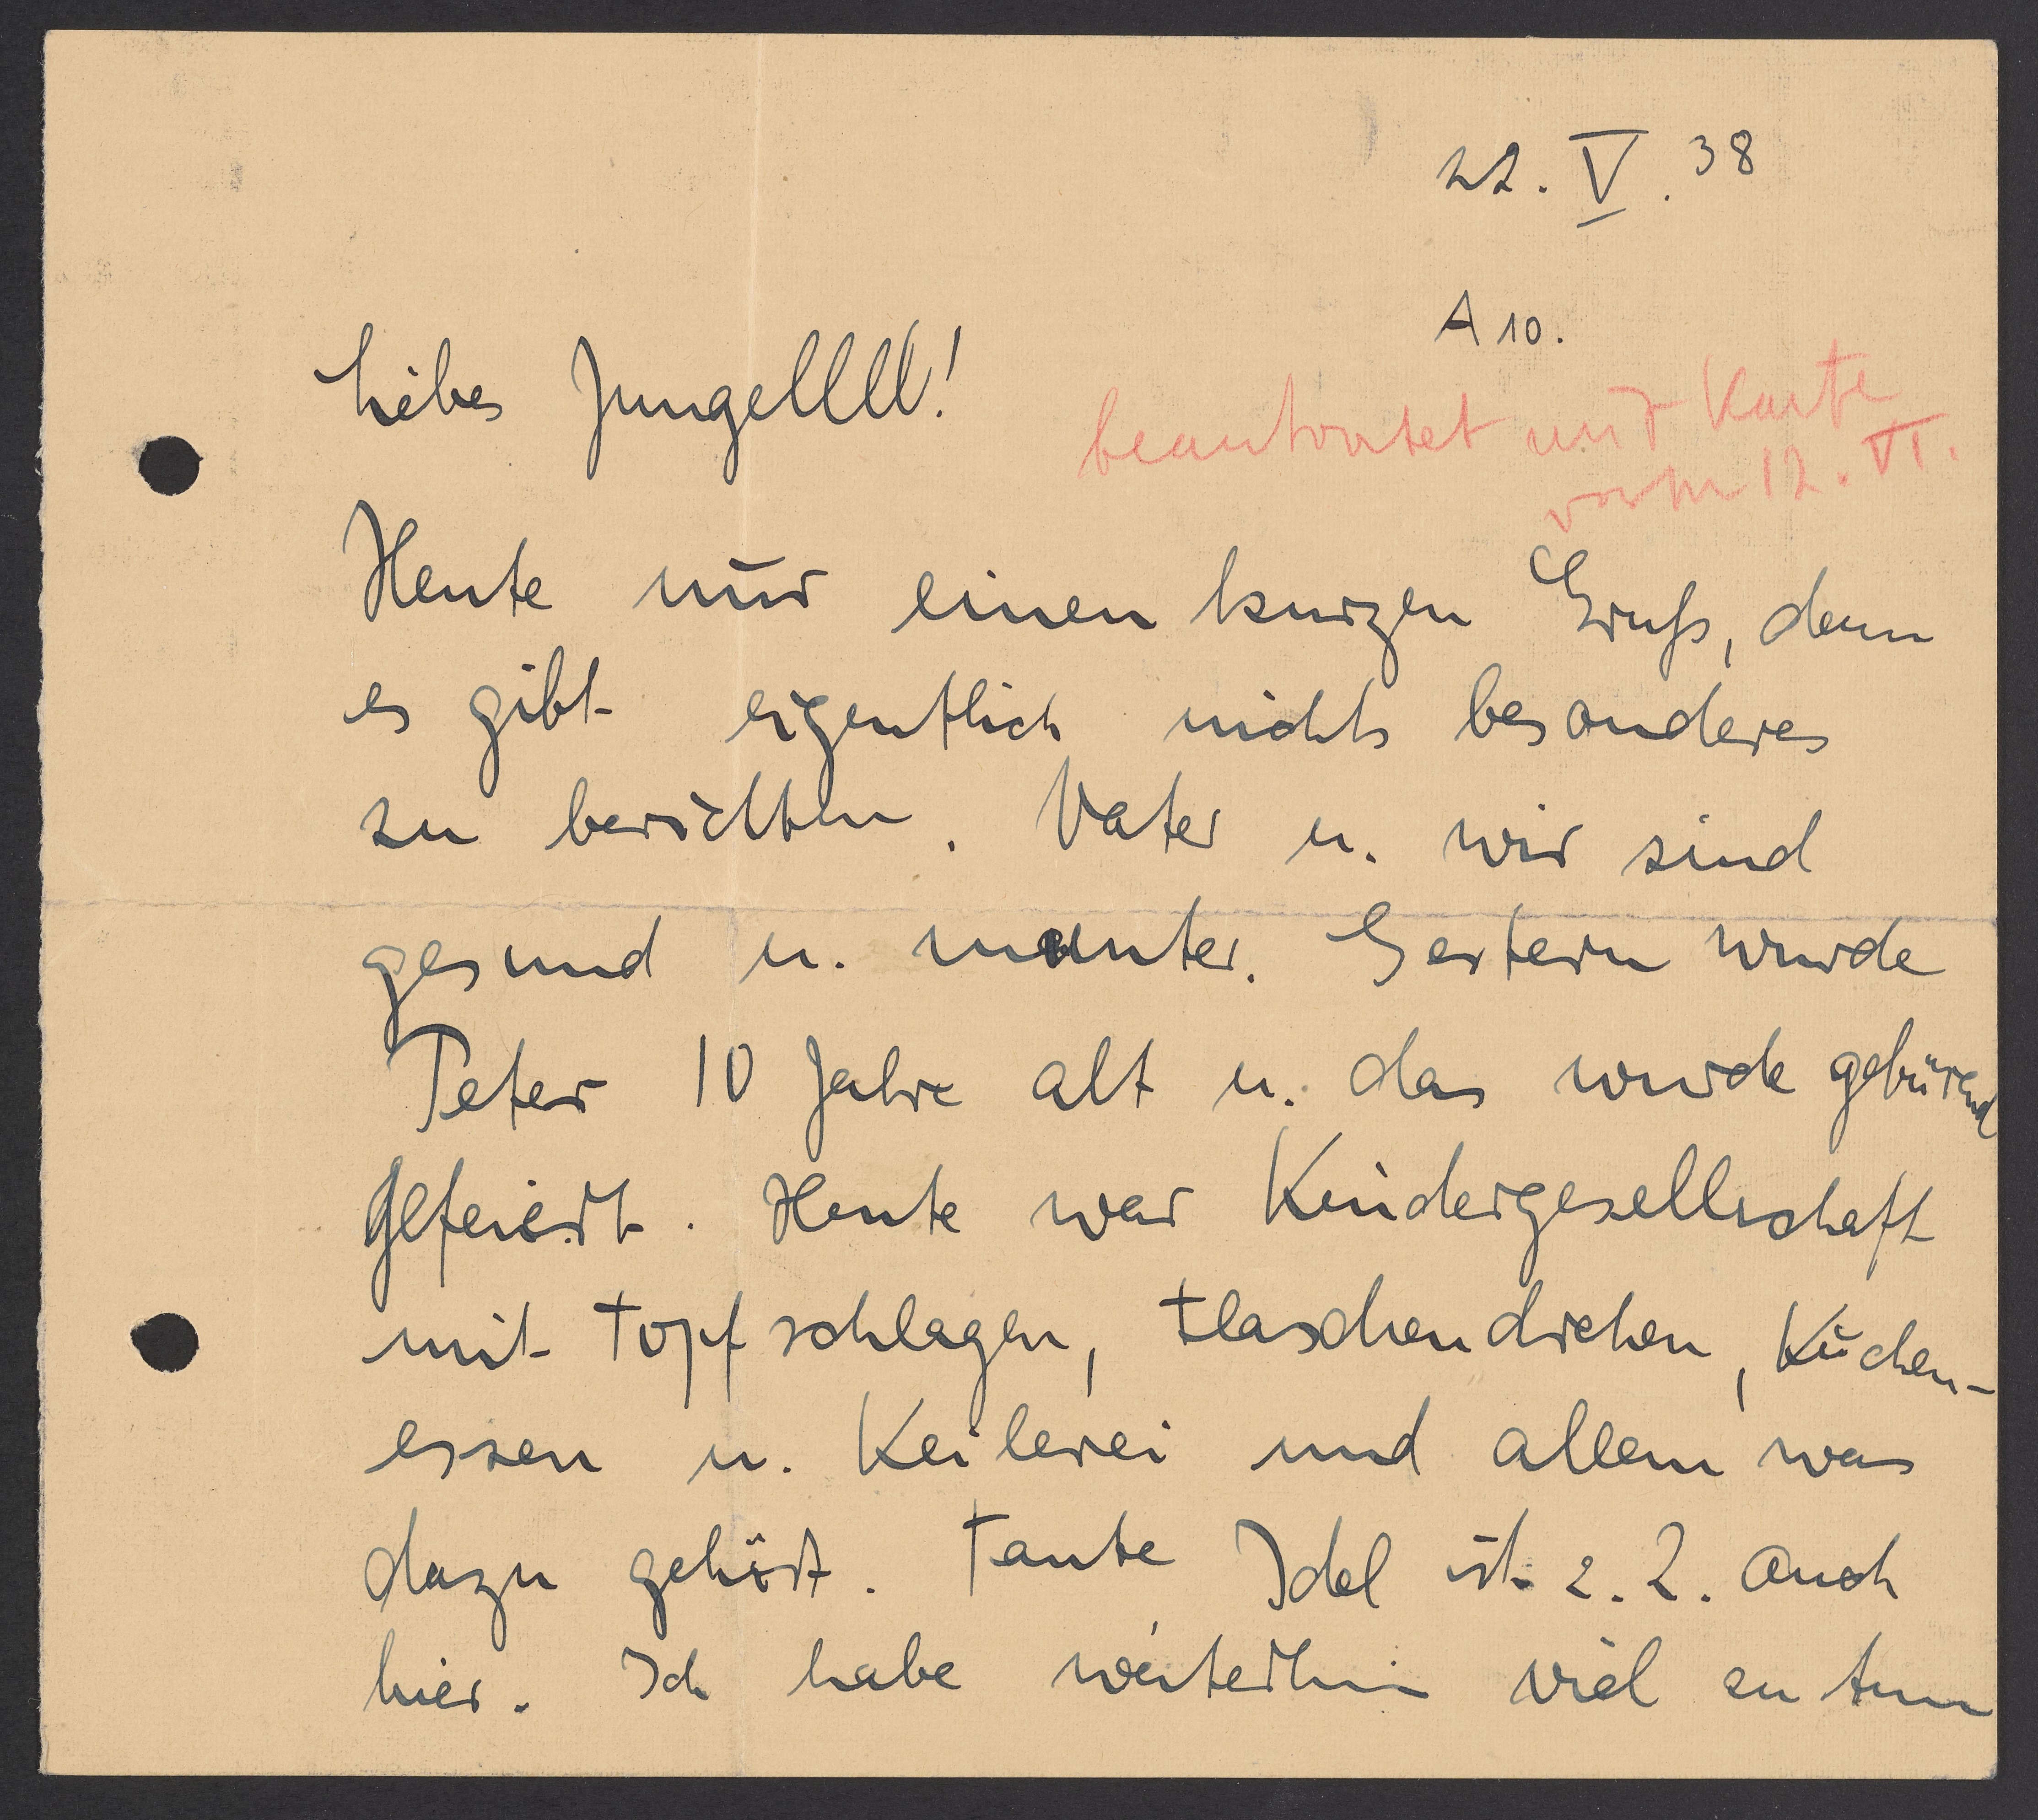 22. V. 38
A 10.
Liebes Jungellll!
beantwortet mit Karte
vom 12. VI.
Heute nur einen kurzen Gruß, denn
es gibt eigentlich nichts besonderes
zu berichten. Vater u. wir sind
gesund u. munter. Gestern wurde
Peter 10 Jahre alt u. das wurde gebürend
gefeiert. Heute war Kindergesellschaft
mit Topfschlagen, Flaschendrehen, Kuchen-
essen u. Keilerei und allem was
dazu gehört. Tante Idel ist z. Z. auch
hier. Ich habe weiterhin viel zu tun